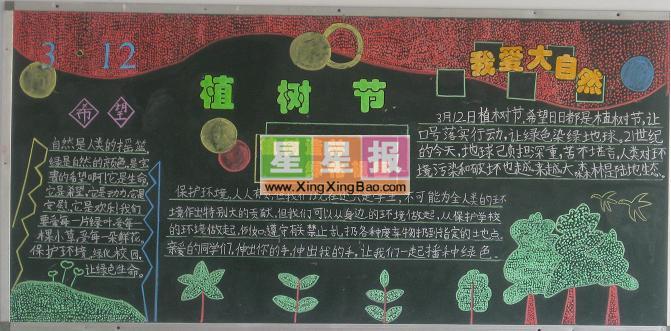 3 12
植树节
我爱大自然
希望
自然是人类的摇篮
绿是自然的颜色,是宝
贵的希望啊!它是生命,
它是希望,它是动力,它更
安慰,它是欢乐!我们
要爱每一片绿叶,爱每一
棵小草,爱每一朵鲜花。
保护环境,绿化校园,
让绿色生命。
3月12日植树节,希望日日都是植树节,让
口号落实行动,让绿色染绿地球。21世纪
的今天,地球已负担深重,苦不堪言,人类对环
境污染和破坏也越来越大,森林
星星报
www.XingXingBao.com
保护环境,人人有
不可能为全人类的生环
境作出特别大的贡献,但我们可以从身边的环境做起,从保护学校
的环境做起,例如:遵守有关禁止乱扔各种废弃物,扔到指定的地点。
亲爱的同学们,伸出你的手,伸出我的手,让我们一起播种绿色。